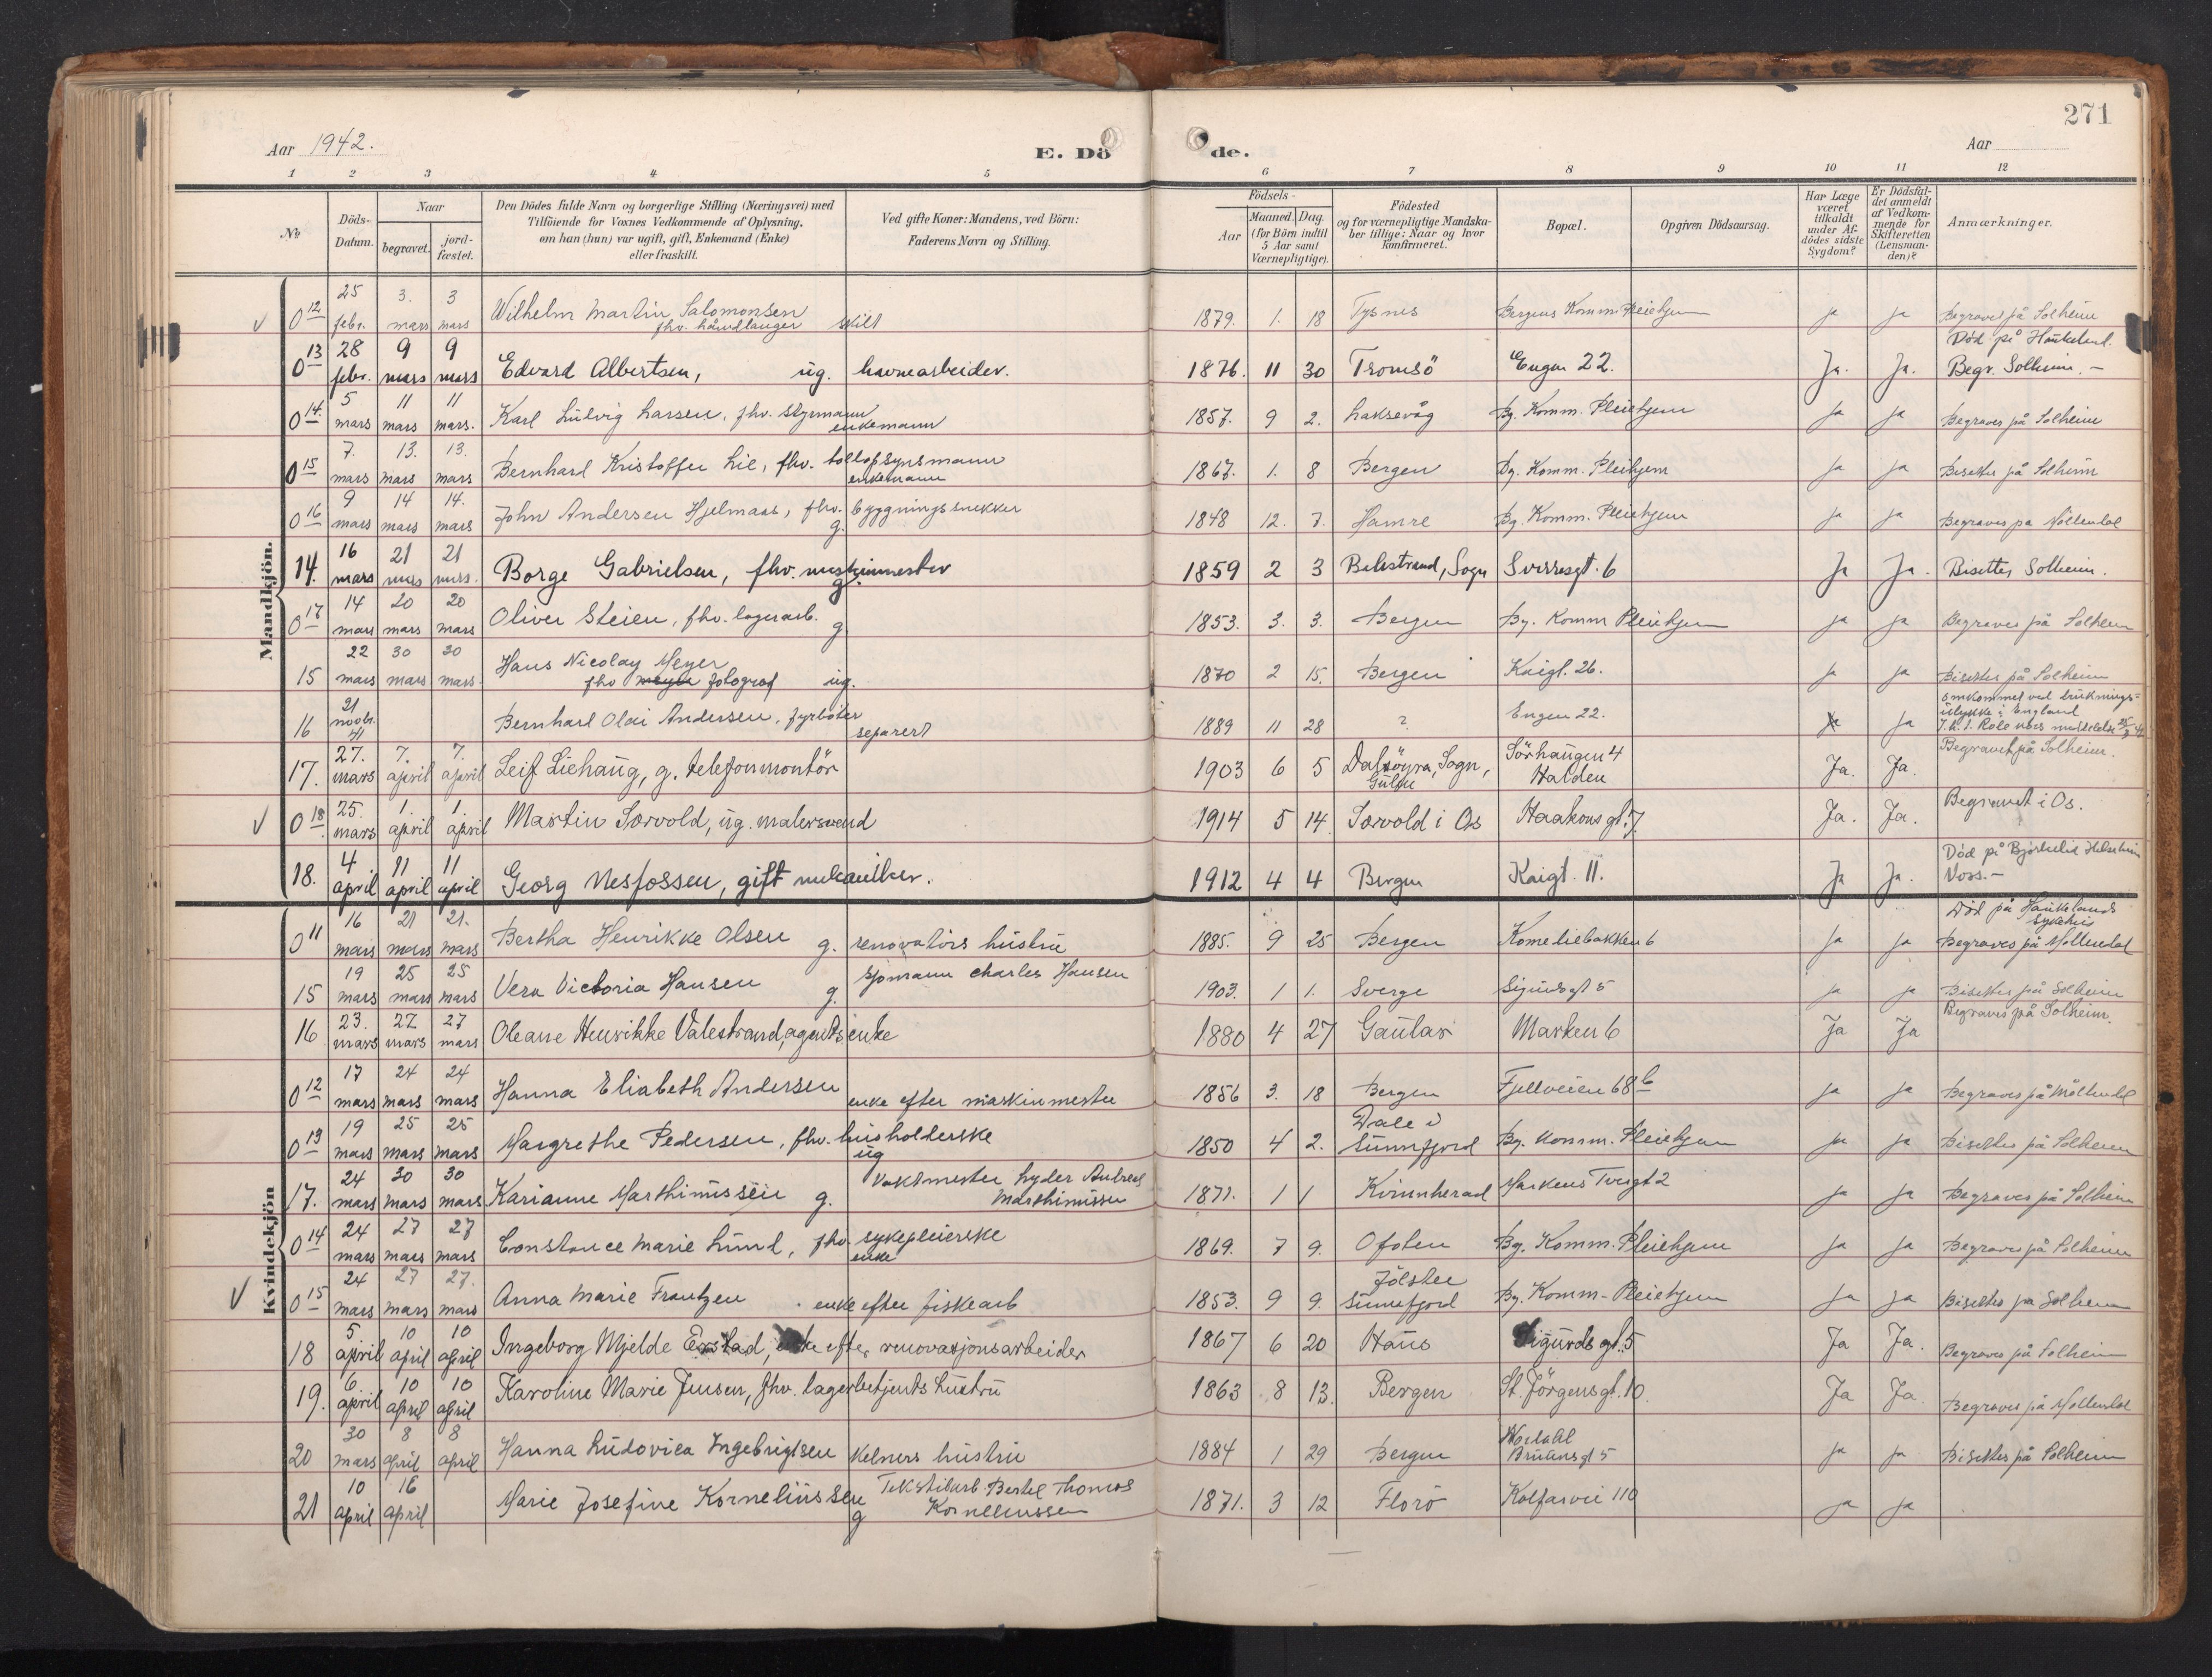 271
Aar 1942.
E. Dö
de.
Aar
1 2 3 4 5 6 7 8 9 10 11 12
No
Döds-Datum.
Naar
begravet.
jord-fæstet.
Den Dödes fulde Navn og borgerlige Stilling (Næringsvei) med
Tilföiende for Voxnes Vedkommende af Oplysning,
om han (hun) var ugift, gift, Enkemand (Enke)
eller fraskilt.
Ved gifte Koner: Mandens, ved Börn:
Faderens Navn og Stilling.
Födsels-
Aar
Maaned. Dag.
(for Börn indtil
5 Aar samt
Værnepligtige).
Födested
og for værnepligtige Mandska-
ber tillige: Naar og hvor
konfirmeret.
Bopæl.
Opgiven Dödsaarsag.
Har Læge
været
tilkaldt
under Af-
dödes sidste
Sygdom?
Er Dödsfal-
det anmeldt
af Vedkom-
mende for
Skifteretten
(Lensman-
den)?
Anmærkninger.
Mandkjön.
0 12 25 febr. 3. mars 3 mars Wilhelm Martin Salomonsen fhv. håndlanger skilt 1879. 1. 18 Tysnes Bergens Komm. Pleiehjem ja ja Begraves på Solheim
0 13 28 febr. 9 mars 9 mars Edvard Albertsen, ug. havnearbeider. 1876. 11 30 Tromsö Engen 22. Ja. Ja. Död på Haukeland. Begr. Solheim. –
0 14. 5 mars 11 mars 11 mars. Karl Ludvig Larsen, fhv. styrmann enkemann 1857. 9 2. Laksevåg Bg. Komm. Pleiehjem ja ja Begraves på Solheim
0 15 7. mars 13. mars 13. mars Bernhard Kristoffer Lie, fhv. tollopsynsmann enkemann 1867. 1. 8 Bergen Bg. Komm. Pleiehjem ja ja Bisettes på Solheim
0 16 9 mars 14 mars 14. mars John Andersen Hjelmaas, fhv. bygningssnekker g. 1848 12. 7. Hamre Bg. Komm. Pleiehjem ja ja Begraves på Möllendal
14. 16 mars 21 mars 21 mars. Borge Gabrielsen, fhv. maskinmester g. 1859 2 3 Balestrand, Sogn Sverresgt. 6 Ja Ja. Bisettes Solheim.
0 17 14 mars 20 mars 20 mars Oliver Steien, fhv. lagerarb. g 1853. 3. 3. Bergen Bg. Komm Pleiehjem ja ja Begraves på Solheim
15 22 mars 30 mars 30 mars. Hans Nicolay Meyer fhv fotograf ug. 1870 2 15. Bergen Kaigt. 26. ja ja Bisettes på Solheim
16 21 novbr. 41 Bernhard Olai Andersen, fyrböter separert 1889 11 28 ? Engen 22. ja omkommet ved drukningsulykke i England
17. 27. mars 7. april 7. april Leif Liehaug, g. telefonmontör 1903 6 5 Dalsöyra, Sogn, Gulen Sörhaugen 4 Halden Ja. Ja. Begravet på Solheim.
0 18 25. mars 1. april 1. april Martin Sørvold, ug. malersvend 1914 5 14 Sørvold i Os Haakonsgt. 7. Ja. Ja. Begravet i Os.
18. 4 april 11 april 11 april Georg Nesfossen, gift mekaniker. 1912 4 4 Bergen Kaigt. 11. Ja Ja. Död på Bjørkelid Helseheim Voss. –
Kvindekjön
0 11 16 mars 21 mars 21. mars Bertha Henrikke Olsen g. renovatörs hustru 1885. 9 25 Bergen Komediebakken 6 ja ja Död på Haukelands sykehus Begraves på Möllendal
15 19 mars 25 mars 25 mars Vera Victoria Hansen g. sjömann Charles Hansen 1903. 1 1. Sverge Sigurdsgt 5 ja ja Bisettes på Solheim
16 23. mars 27. mars 27 mars Oleane Henrikke Valestrand, agents enke 1880 4 27 Gaular Marken 6 Ja Ja Begraves på Solheim.
0 12 17 mars 24 mars 24 mars Hanna Eliabeth Andersen enke efter maskinmester 1856 3. 18 Bergen Fjellveien 68 b ja ja Begraves på Möllendal
0 13 19 mars 25 mars 25 mars Margrethe Pedersen, fhv. husholderske ug 1850 4 2. Dale i Sunnfjord Bg. Komm. Pleiehjem ja ja Bisettes på Solheim
17. 24 mars 30 mars 30 mars Karianne Marthinussen g. Vaktmester Lyder Andreas Marthinussen 1871. 1 1 Kvinnherad Markens Tvergt 2 ja ja Begraves på Solheim
0 14 24 mars 27 mars 27 mars Constance Marie Lund, fhv. sykepleierske enke 1869. 7 9. Ofoten Bg. Komm. Pleiehjem ja ja Begraves på Solheim
0 15 24 mars 27 mars 27. mars Anna Marie Frantzen enke efter fiskearb 1853. 9 9. Jölster Sunnfjord Bg. Komm. Pleiehjem ja ja Bisettes på Solheim
18 5. april 10 april 10 april Ingeborg Mjelde Erstad, enke efter renovasjonsarbeider 1867 6 20 Haus Sigurds gt. 5 Ja Ja. Begraves på Solheim
19. 6 april 10 april 10 april Karoline Marie Jensen, fhv. lagerbetjents hustru 1863 8 13. Bergen St. Jörgensgt. 10 Ja Ja. Begraves på Möllendal
20 30 mars 8 april 8 april Hanna Ludovica Ingebrigtsen Kelners hustru 1884 1 29 Bergen Nordahl Brunsgt 5 ja ja Bisettes på Solheim
21 10 april 16 april Marie Josefine Korneliussen g Tekstilarb. Bertel Thomas Korneliussen 1871. 3 12 Florö Kalfarvei 110 ja ja